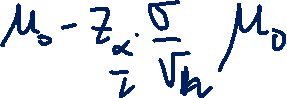 μ₀ - z_{α/2} · σ/√n μ₀